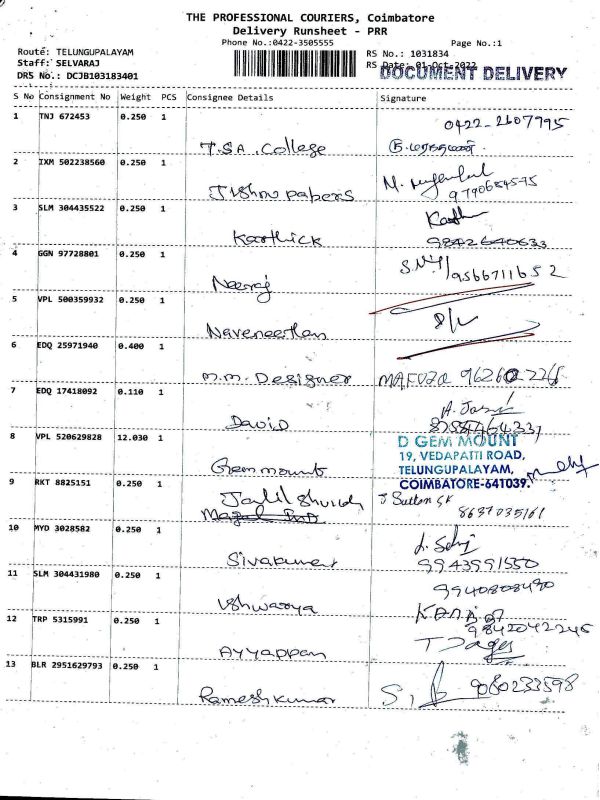 THE PROFESSIONAL COURIERS, Coimbatore
Delivery Runsheet - PRR
Phone No.:0422-3505555
Page No.:1
Route: TELUNGUPALAYAM
RS No.: 1031834
Staff: SELVARAJ
RS Date: 01-Oct-2022
DRS No.: DCJB103183401
DOCUMENT DELIVERY
S No Consignment No Weight PCS Consignee Details Signature
1 TNJ 672453 0.250 1
0422-2607795
T.S.A. College
2 IXM 502238560 0.250 1
Jishnu papers
3 SLM 304435522 0.250 1
Karthick 9842640633
4 GGN 97728801 0.250 1
9566711652
Neeraj
5 VPL 500359932 0.250 1
6 EDQ 25971940 0.400 1
M.M. Designer
7 EDQ 17418092 0.110 1
David
8 VPL 520629828 12.030 1
D GEM MOUNT
19, VEDAPATTI ROAD,
TELUNGUPALAYAM,
COIMBATORE-641039.
Gem mount
9 RKT 8825151 0.250 1
8637035161
10 MYD 3028582 0.250 1
Sivakumar 9943991550
11 SLM 304431980 0.250 1
9940808490
12 TRP 5315991 0.250 1
9842042245
Ayyappan
13 BLR 2951629793 0.250 1
9080233598
Rameshkumar